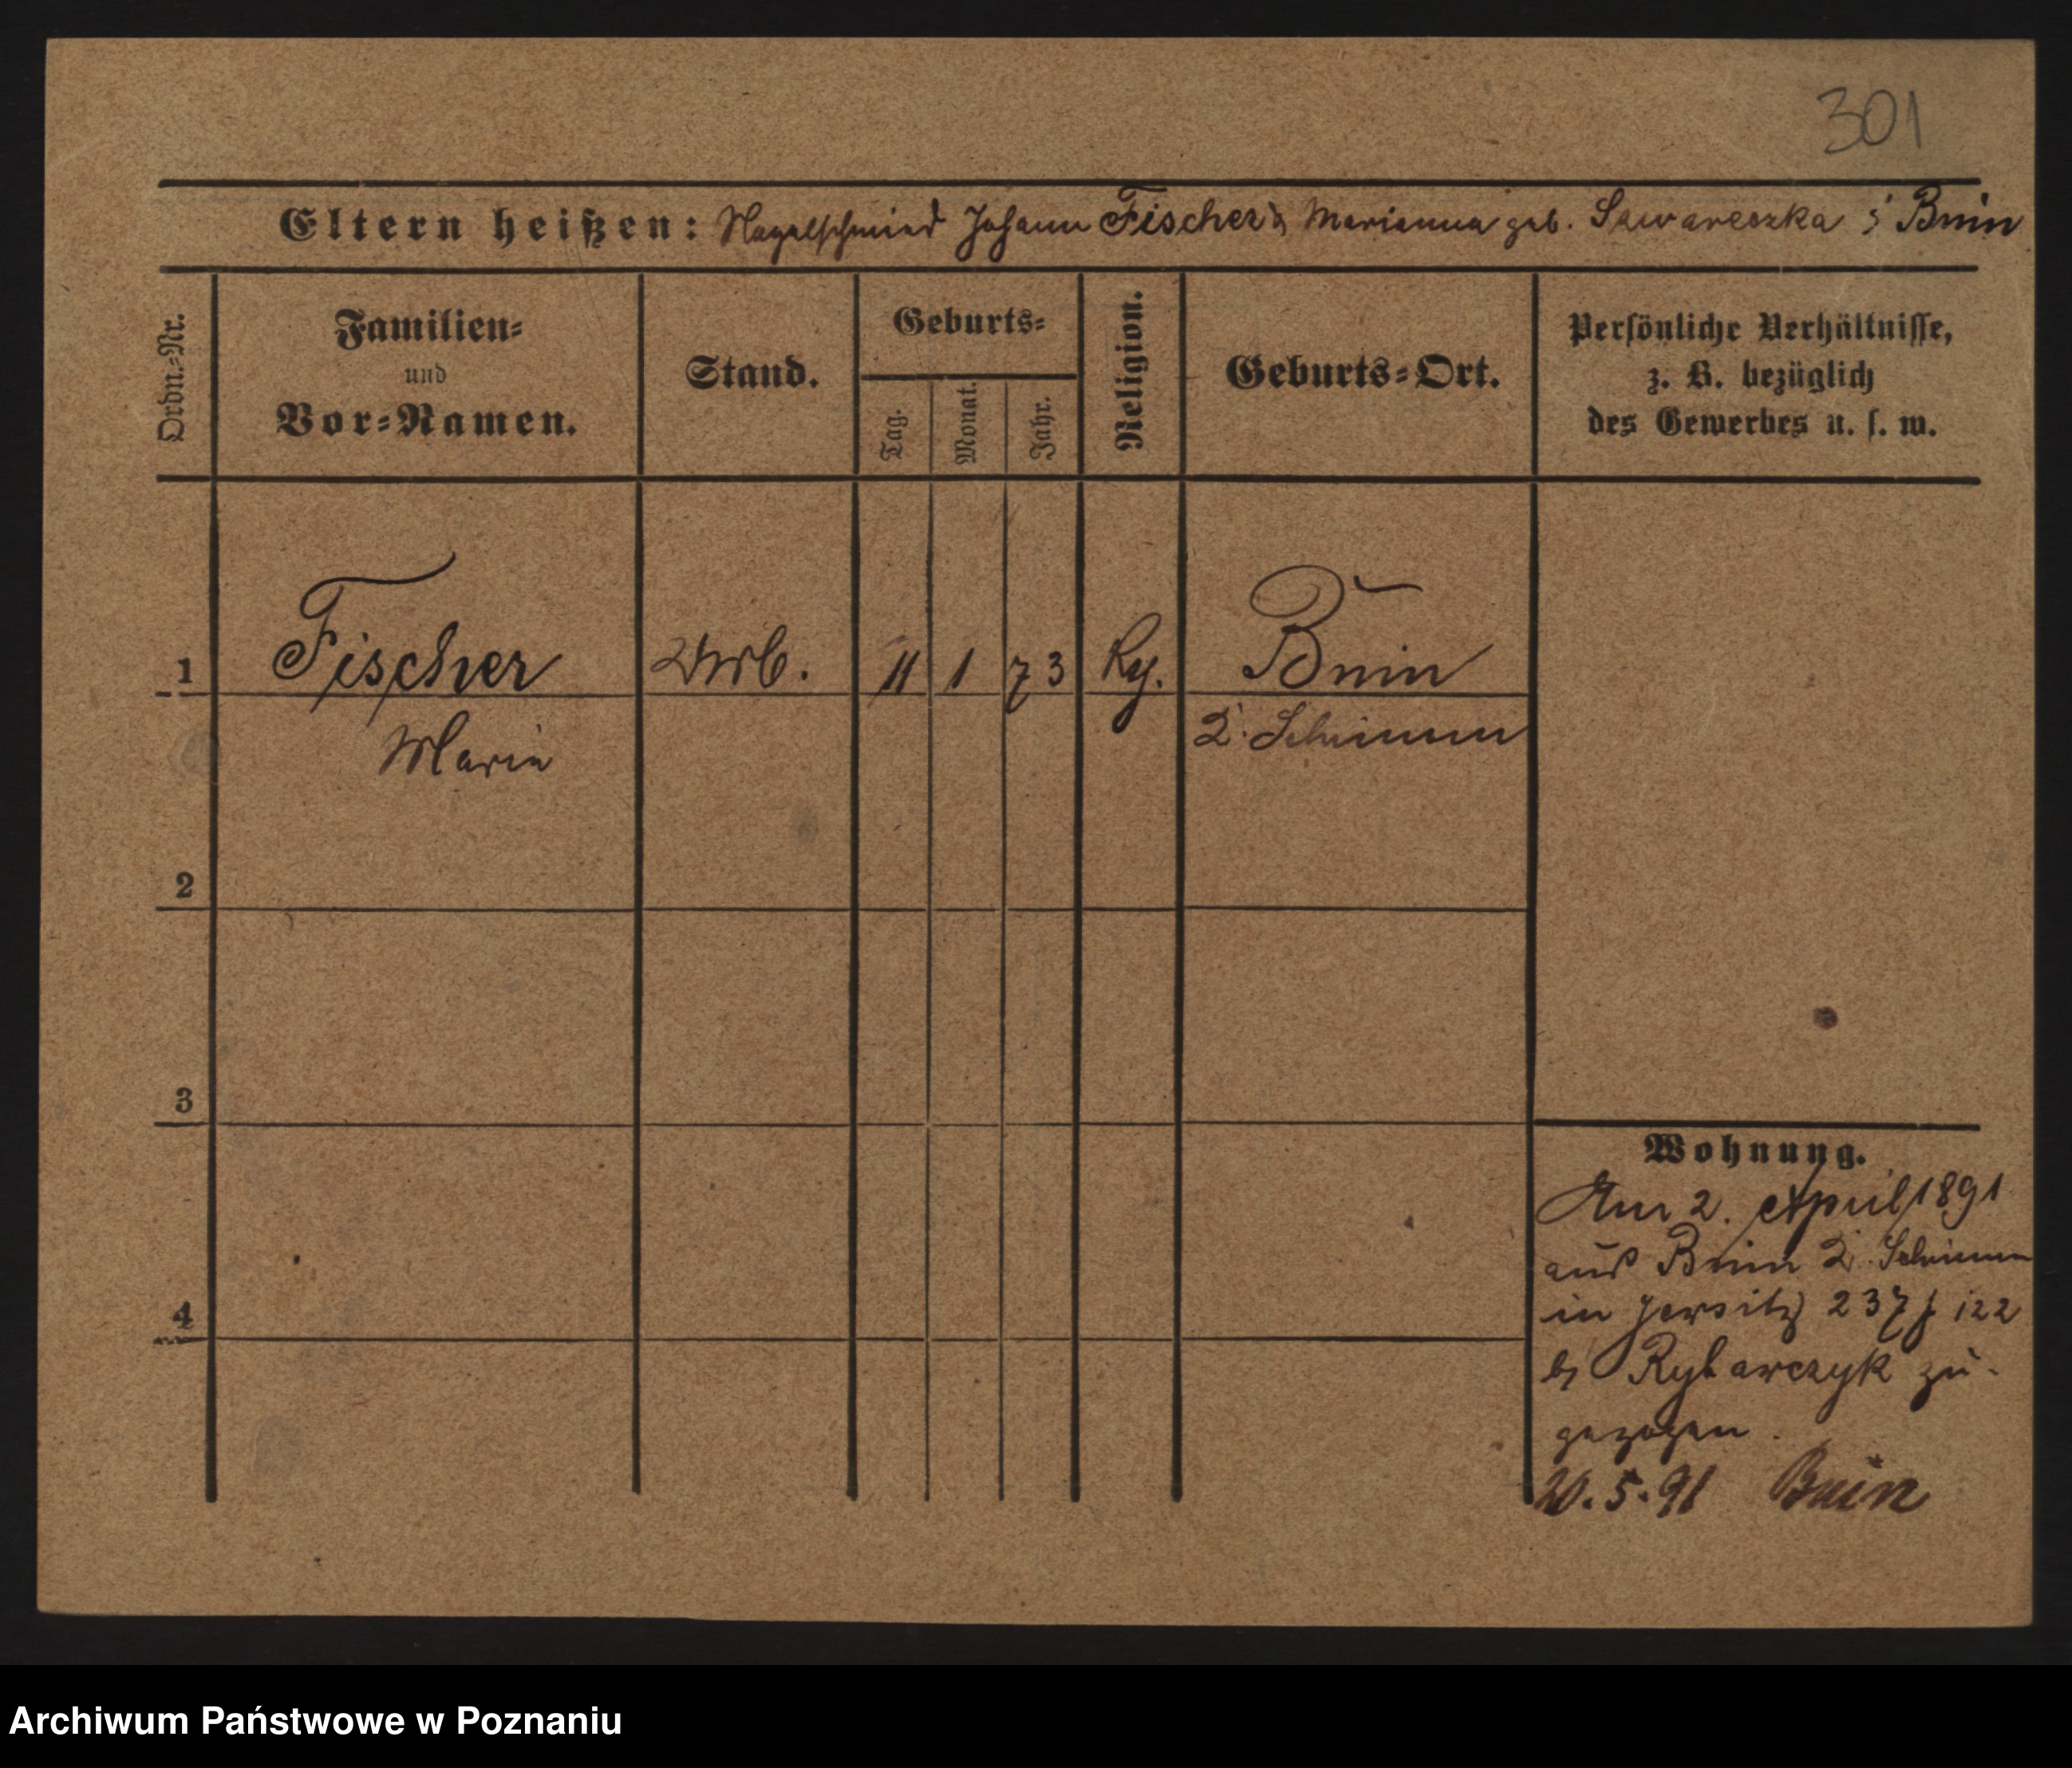 301
Eltern heißen: Nagelschmied Johann Fischer & Marianna geb. Sawareczka i Bnin
Ordn.=Nr.
Familien=
und
Vor=Namen.
Stand.
Geburts=
Tag.
Monat.
Jahr.
Religion.
Geburts=Ort.
Persönliche Verhältnisse,
z. B. bezüglich
des Gewerbes u. s. w.
1 Fischer 11 1 73 Bnin
Marie Schrimm
2
3
4
Wohnung.
Am 2. April 1891
aus Bnin Schrimm
in Jersitz 237 122
b/ Rybarczyk zu-
gezogen.
20.5.91 Bnin
Archiwum Państwowe w Poznaniu